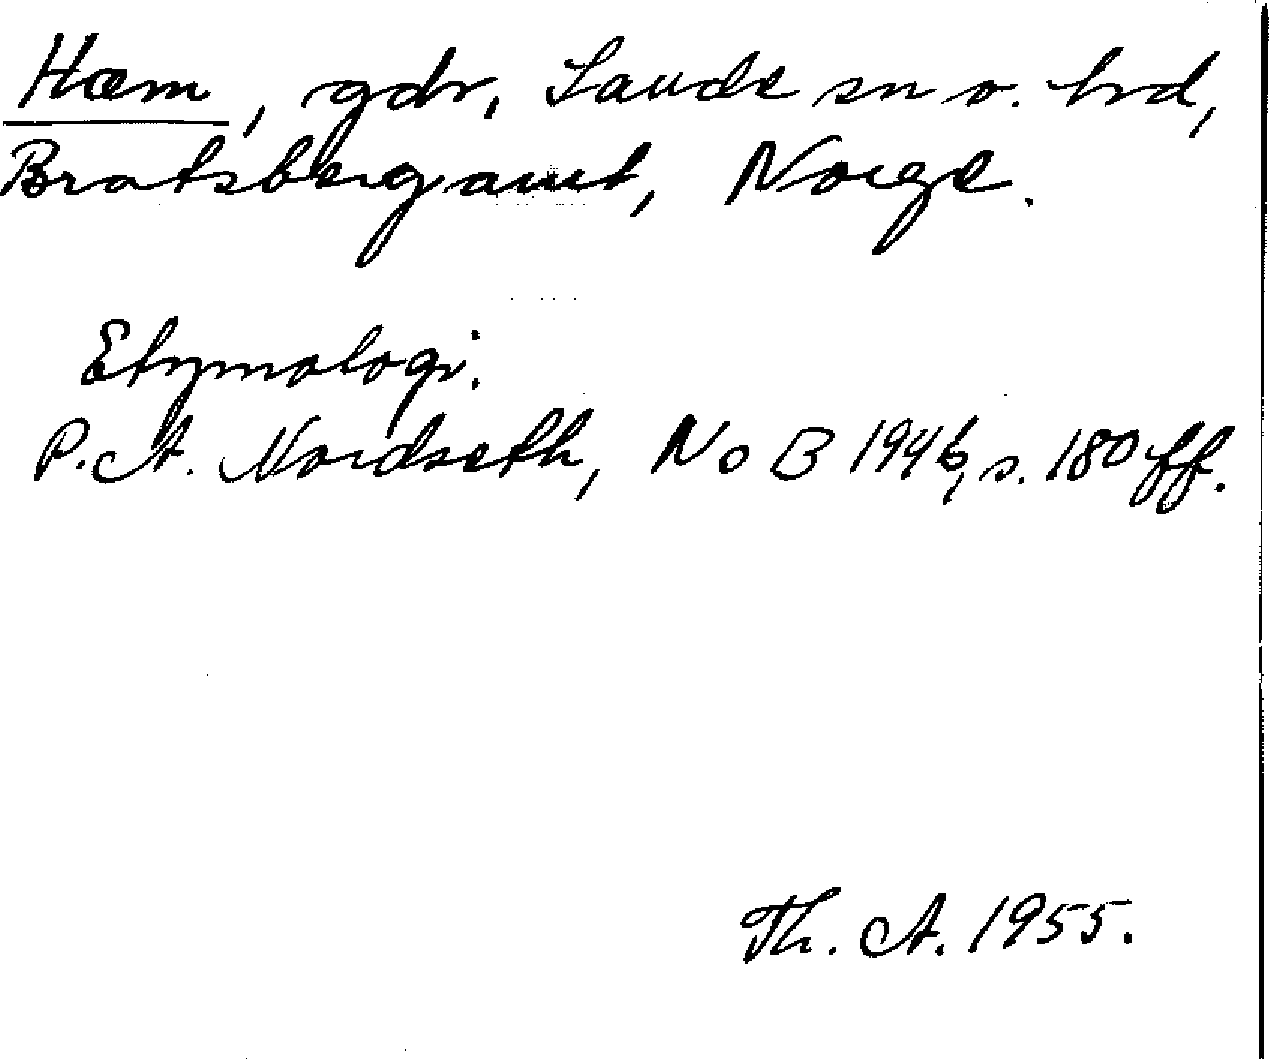 Hæm, gdr, Saude sn o. hrd,
Bratsbergamt, Norge.
Etymologi.
P. A. Nordseth, NoB 1946, s. 180 ff.
Th. A. 1955.